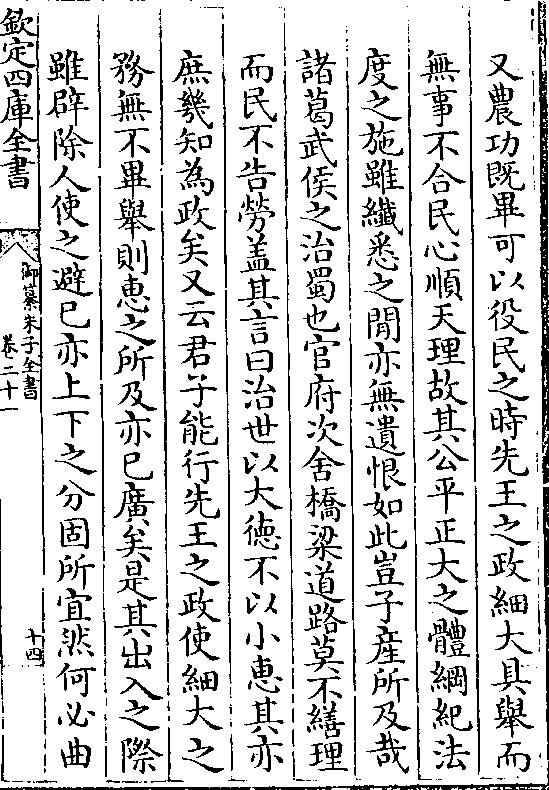 又農功既畢可以役民之時先王之政細大具舉而
無事不合民心順天理故其公平正大之體綱紀法
度之施雖纖悉之閒亦無遺恨如此豈子產所及哉
諸葛武侯之治蜀也官府次舍橋梁道路莫不繕理
而民不告勞盖其言曰治世以大德不以小惠其亦
庶幾知為政矣又云君子能行先王之政使細大之
務無不畢舉則惠之所及亦已廣矣是其出入之際
雖辟除人使之避已亦上下之分固所宜然何必曲
欽定四庫全書
御纂朱子全書
卷二十一
十四